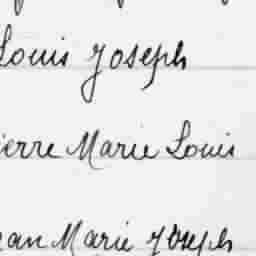 Louis Joseph
ierre Marie Louis
ean Marie Joseph